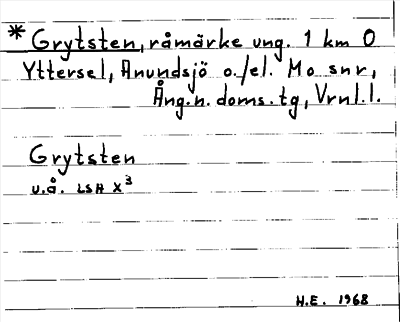 * Grytsten, råmärke ung. 1 km O
Yttersel, Anundsjö o./el. Mo snr,
Ång.n.doms.tg, Vrnl.l.
Grytsten
u.å. LSH X³
H.E. 1968